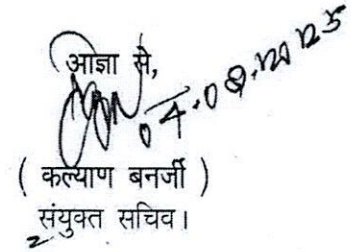 आज्ञा से,
04.09.2025
( कल्याण बनर्जी )
संयुक्त सचिव।